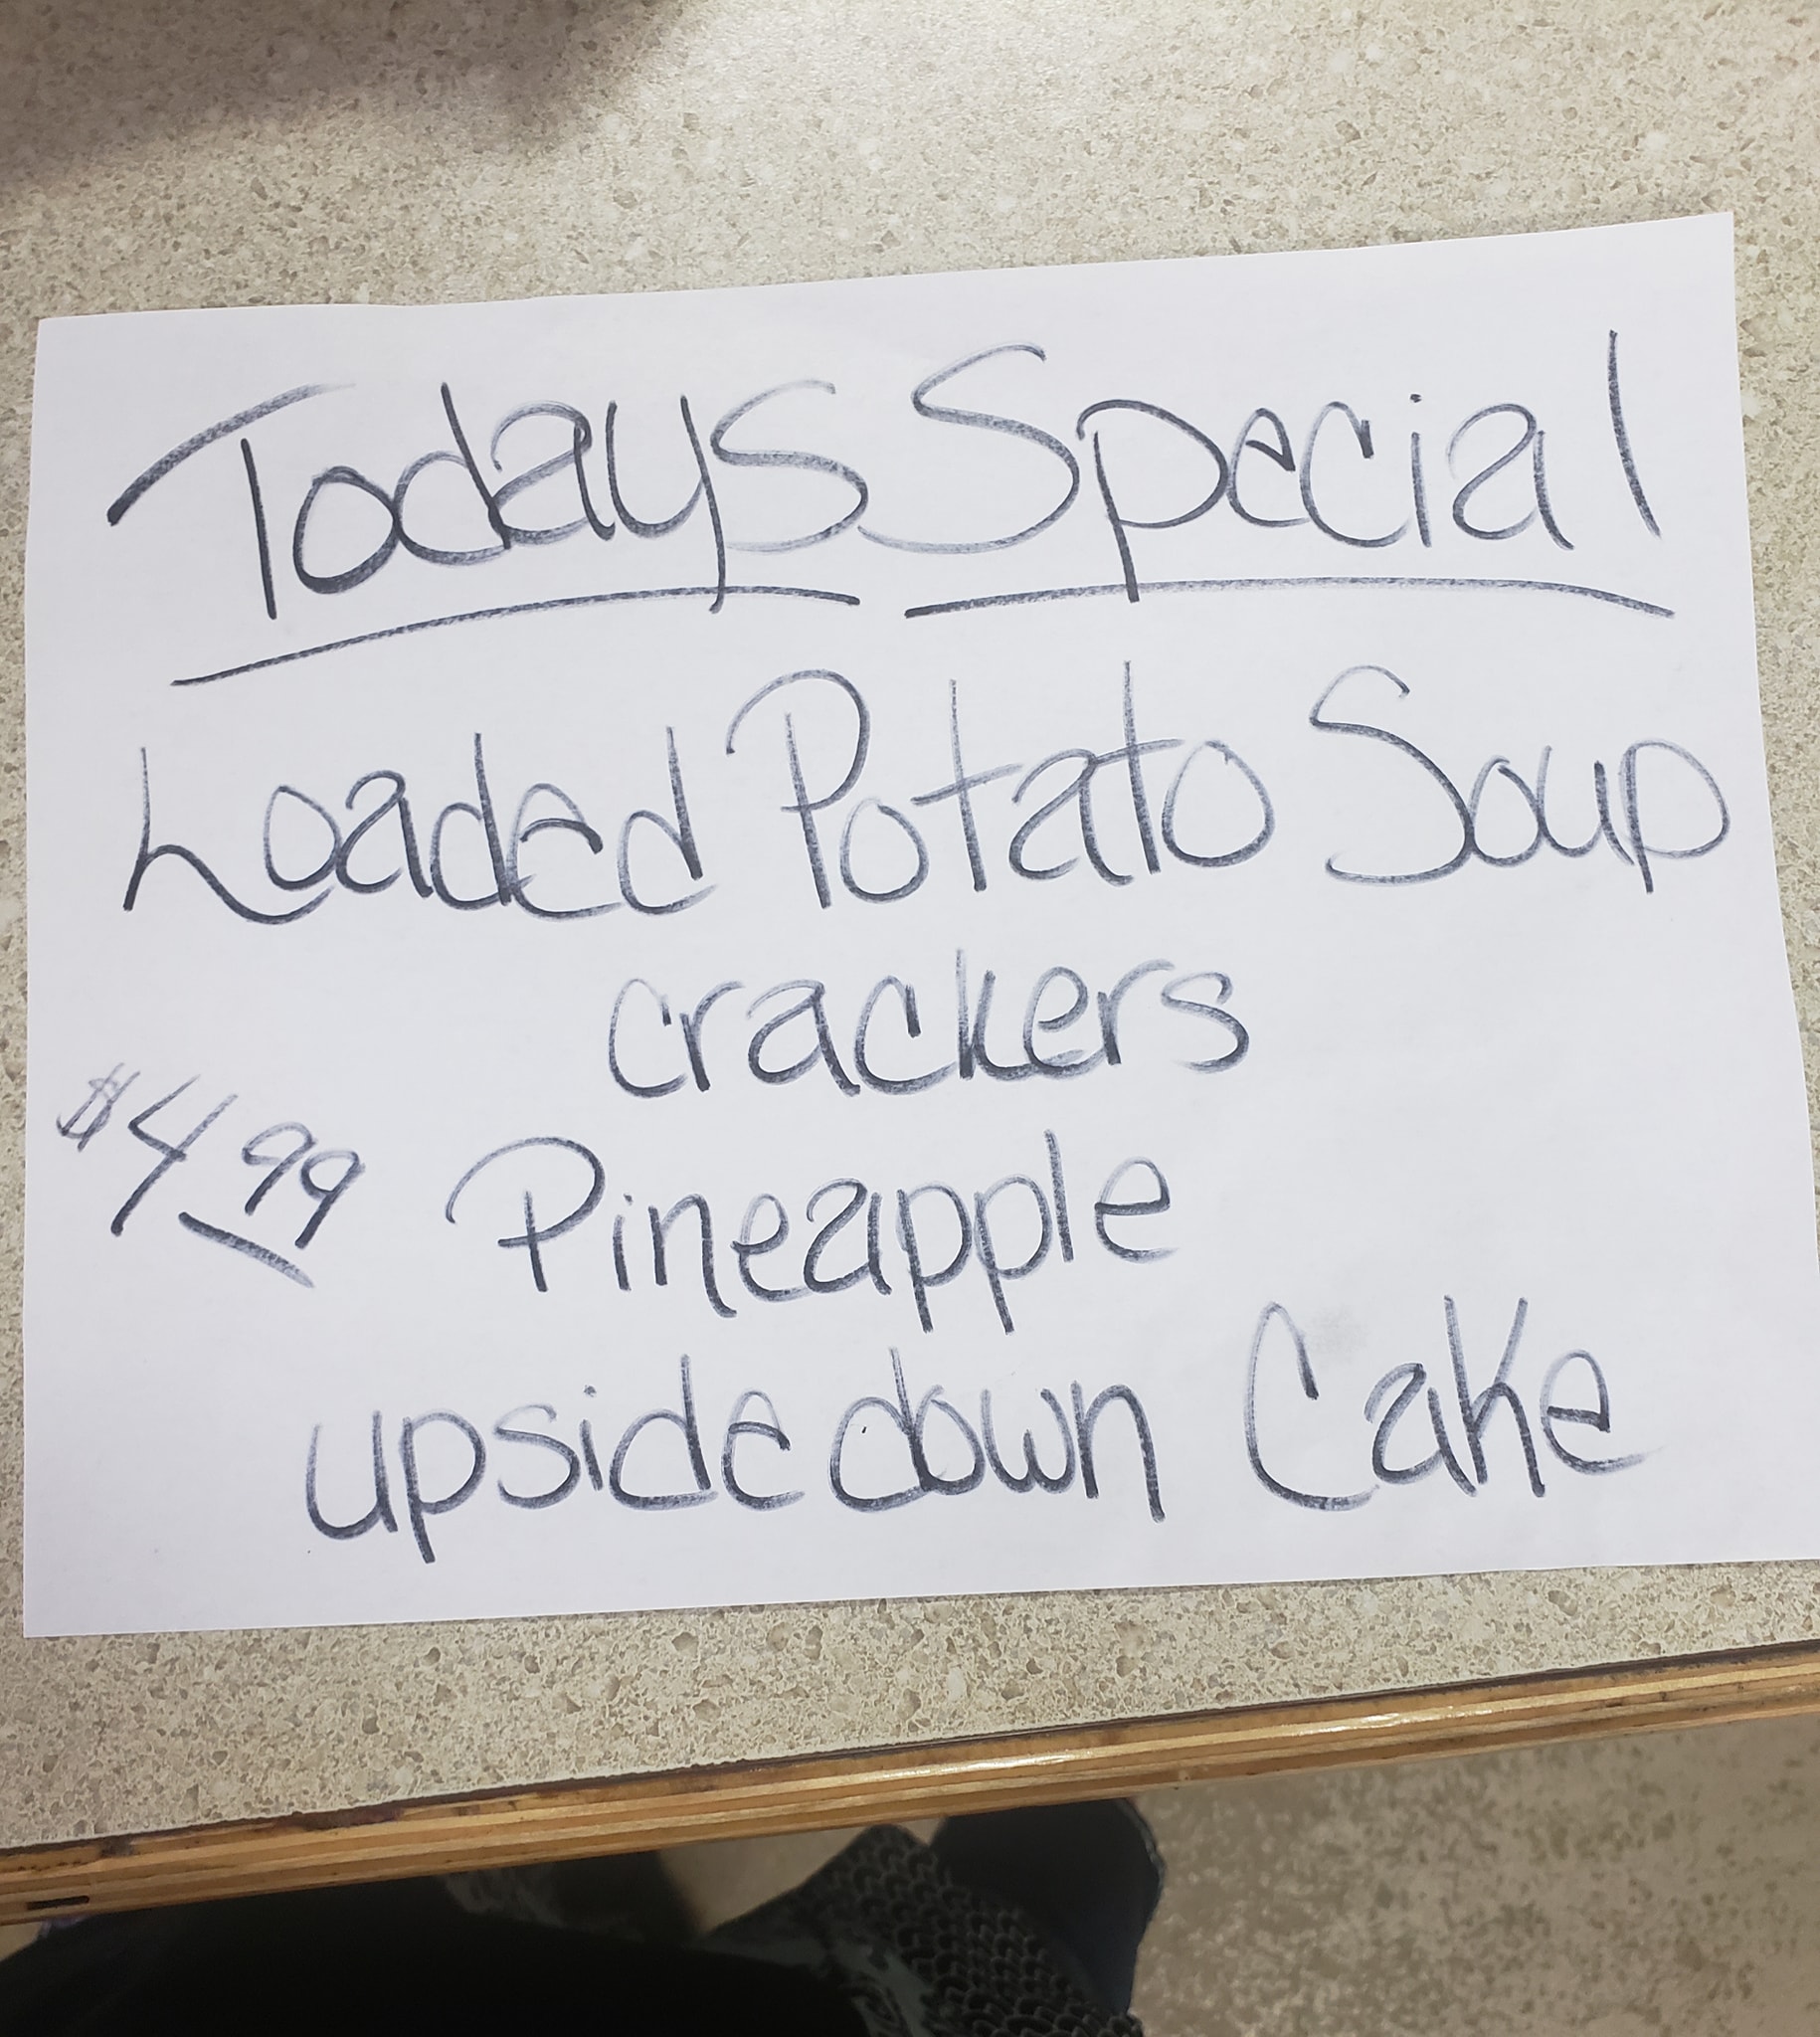 Todays Special
Loaded Potato Soup
crackers
$4.99
Pineapple
upside down Cake